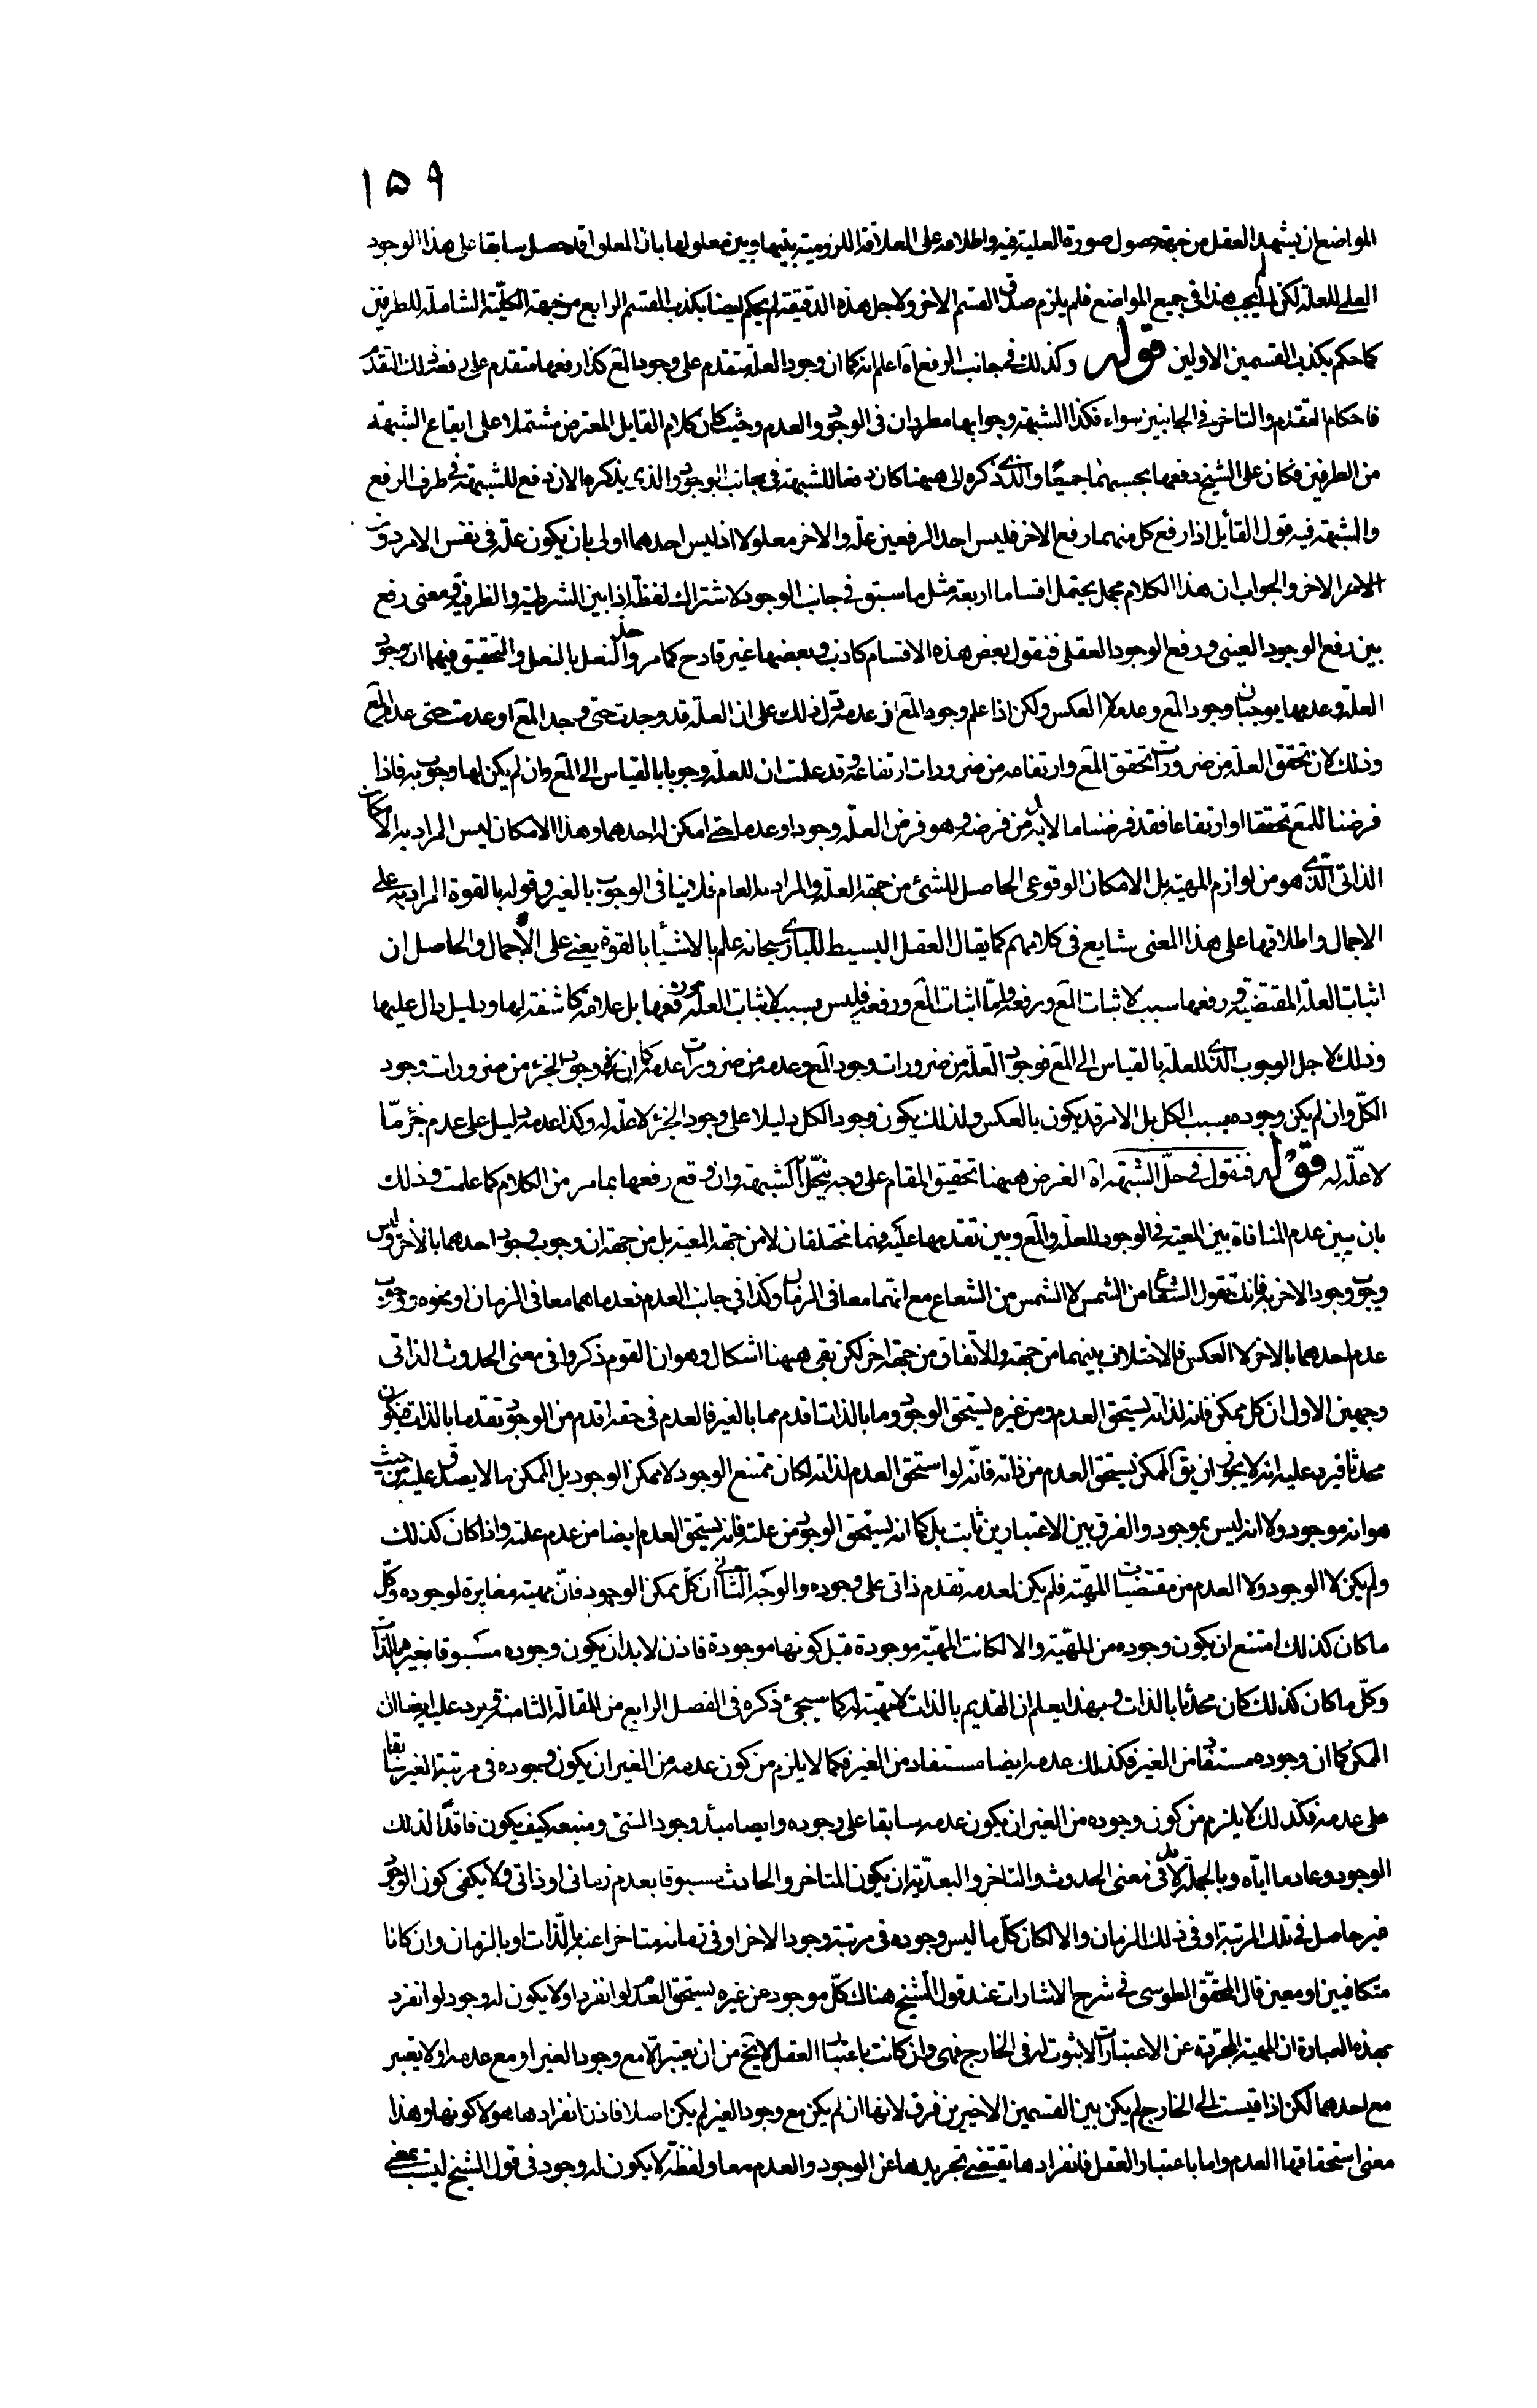 ١٥٩
المواضع ان يشهد العقل من جهة حصول صورة العلية فيه واطلاعه على العلاقة اللزومية بينها وبين معلولها بان المعلول قد حصل سابقا على هذا الوجود
العلمي للعلة لكن لم يجب هذا في جميع المواضع فلم يلزم صدق القسم الاخر ولاجل هذه الدقيقة لم يحكم ايضا بكذب القسم الرابع من جهة الكلية الشاملة للطرفين
كما حكم بكذب القسمين الاولين قوله وكذلك في جانب الرفع اه اعلم انه كما ان وجود العلة متقدم على وجود المع كذا رفعها متقدم على رفعه ذلك التقدم
فاحكام التقدم والتاخر في الجانبين سواء فكذا الشبهة وجوابها مطردان في الوجود والعدم وحيث كان كلام القايل المعترض مشتملا على ايقاع الشبهة
من الطرفين فكان على الشيخ دفعها بحسبهما جميعا والذي ذكره الى ههنا كان دفعا للشبهة في جانب الوجود والذي يذكره الان دفع للشبهة في طرف الرفع
والشبهة فيه قول القايل اذا رفع كل منهما رفع الاخر فليس احد الرفعين علة والاخر معلولا اذ ليس احدهما اولى بان يكون علة في نفس الامر دون
الامر الاخر والجواب ان هذا الكلام مجمل يحتمل اقساما اربعة مثل ما سبق في جانب الوجود لاشتراك لفظة اذا بين الشرطية والظرفية وفي معنى رفع
بين رفع الوجود العيني ورفع الوجود العقلي فنقول بعض هذه الاقسام كاذب وبعضها غير قادح كما مر حذو النعل بالنعل والتحقيق فيهما ان وجود
العلة وعدمها يوجبان وجود المع وعدمه لا العكس ولكن اذا علم وجود المع او عدمه دل ذلك على ان العلة قد وجدت حتى وجد المع او عدمت حتى عدم المع
وذلك لان تحقق العلة من ضرورات تحقق المع وارتفاعه من ضرورات ارتفاعه وقد علمت ان للعلة وجوبا بالقياس الى المع وان لم يكن لها وجوب به فاذا
فرضنا للمع تحققا او ارتفاعا فقد فرضنا ما لابد من فرضه وهو فرض العلة وجودا وعدما حتى امكن له احدهما وهذا الامكان ليس المراد به الامكان
الذاتي الذي هو من لوازم المهية بل الامكان الوقوعي الحاصل للشيء من جهة العلة والمراد به العام فلا ينافي الوجوب بالغير وقوله بالقوة المراد به على
الاجمال واطلاقها على هذا المعنى شايع في كلامهم كما يقال العقل البسيط للباري سبحانه علم بالاشياء بالقوة يعني على الاجمال والحاصل ان
اثبات العلة المقتضية ورفعها سبب لاثبات المع ورفعه واما اثبات المع ورفعه فليس بسبب لاثبات العلة ورفعها بل علامة كاشفة لها ودليل دال عليها
وذلك لاجل الوجوب الذي للعلة بالقياس الى المع فوجود العلة من ضرورات وجود المع وعدمه من ضرورات عدمه كما ان وجود الجزء من ضرورات وجود
الكل وان لم يكن وجوده بسبب الكل بل الامر قد يكون بالعكس ولذلك يكون وجود الكل دليلا على وجود الجزء لا علة له وكذا عدمه دليل على عدم جزء ما
لا علة له قوله فنقول في حل الشبهة اه الغرض ههنا تحقيق المقام على وجه ينحل به الشبهة وان وقع رفعها بما مر من الكلام كما علمت وذلك
بان يبين عدم المنافاة بين المعية في الوجود للعلة والمع وبين تقدمها عليه فهما مختلفان لا من جهة المعية بل من جهة ان وجوب وجود احدهما بالاخر وليس
وجوب وجود الاخر به فانك تقول الشعاع من الشمس لا الشمس من الشعاع مع انهما معا في الزمان وكذا في جانب العدم فعدماهما معا في الزمان او نحوه ووجوب
عدم احدهما بالاخر لا العكس فالاختلاف بينهما من جهة والاتفاق من جهة اخر لكن بقي ههنا اشكال وهو ان القوم ذكروا في معنى الحدوث الذاتي
وجهين الاول ان كل ممكن فانه لذاته يستحق العدم ومن غيره يستحق الوجود وما بالذات اقدم مما بالغير فالعدم في حقه اقدم من الوجود تقدما بالذات فيكون
محدثا فيرد عليه انه لا يجوز ان يق الممكن يستحق العدم من ذاته فانه لو استحق العدم لذاته لكان ممتنع الوجود لا ممكن الوجود بل الممكن ما لا يصدق عليه من حيث
هو انه موجود ولا انه ليس بموجود والفرق بين الاعتبارين ثابت بل كما انه يستحق الوجود من علته فانه يستحق العدم ايضا من عدم علته واذا كان كذلك
ولم يكن لا الوجود ولا العدم من مقتضيات المهية فلم يكن لعدمه تقدم ذاتي على وجوده والوجه الثاني ان كل ممكن الوجود فان مهيته مغايرة لوجوده وكل
ما كان كذلك امتنع ان يكون وجوده من المهية والا لكانت المهية موجودة قبل كونها موجودة فاذن لابد ان يكون وجوده مسبوقا بغيره بالذات
وكل ما كان كذلك كان محدثا بالذات وبهذا يعلم ان القديم بالذات لا مهية له كما سيجيء ذكره في الفصل الرابع من المقالة الثامنة ويرد عليه ايضا ان
الممكن كما ان وجوده مستفاد من الغير فكذلك عدمه ايضا مستفاد من الغير فكما لا يلزم من كون عدمه من الغير ان يكون وجوده في مرتبة الغير سابقا
على عدمه فكذلك لا يلزم من كون وجوده من الغير ان يكون عدمه سابقا على وجوده وايضا مبدأ وجود الشيء ومنبعه كيف يكون فاقدا لذلك
الوجود وعادما اياه وبالجملة لابد في معنى الحدوث والتاخر والبعدية ان يكون المتاخر والحادث مسبوقا بعدم زماني او ذاتي ولا يكفي كون الوجود
غير حاصل في تلك المرتبة او في ذلك الزمان والا لكان كل ما ليس وجوده في مرتبة وجود الاخر او في زمانه متاخرا عنه بالذات او بالزمان وان كانا
متكافيين او معين قال المحقق الطوسي في شرح الاشارات عند قول الشيخ هناك كل موجود عن غيره يستحق العدم لو انفرد او لا يكون له وجود لو انفرد
بهذه العبارة ان المهية المجردة عن الاعتبارات لا ثبوت لها في الخارج فهي وان كانت باعتبار العقل لا يخ من ان يعتبر اما مع وجود الغير او مع عدمه او لا يعتبر
مع احدهما لكن اذا قيست الى الخارج لم يكن بين القسمين الاخيرين فرق لانها ان لم يكن مع وجود الغير لم يكن اصلا فاذن انفرادها هو لا كونها وهذا
معنى استحقاقها العدم واما باعتبار العقل فانفرادها يقتضي تجريدها عن الوجود والعدم معا ولفظة لا يكون له وجود في قول الشيخ ليست بمعنى